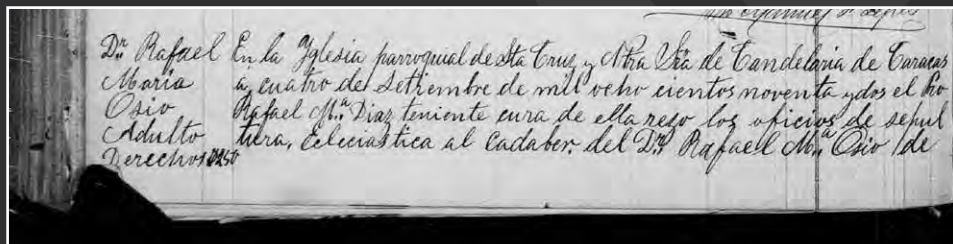 Dr. Rafael
Maria
Osio
Adulto
Derechos
En la Yglesia parroquial de Sta Cruz y Ntra Sra de Candelaria de Caracas
a, cuatro de Setiembre de mil ocho cientos noventa y dos el Pro
Rafael Ma. Diaz teniente cura de ella reso los oficios de sepul
tura, Eclesiastica al Cadaber. del Dr. Rafael Ma. Osio de